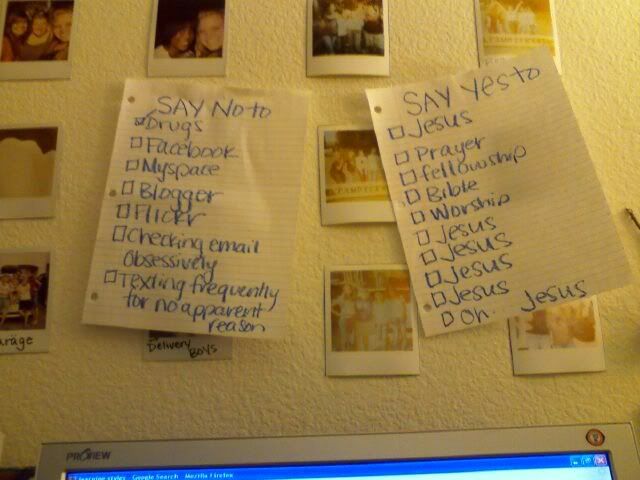 SAY NO to
Drugs
Facebook
Myspace
Blogger
Flickr
Checking email
Obsessively
Texting frequently
for no apparent
reason
SAY Yes to
Jesus
Prayer
fellowship
Bible
Worship
Jesus
Jesus
Jesus
Jesus
Oh. Jesus
Delivery
BOYS
PROVIEW
learning styles - Google Search - Mozilla Firefox